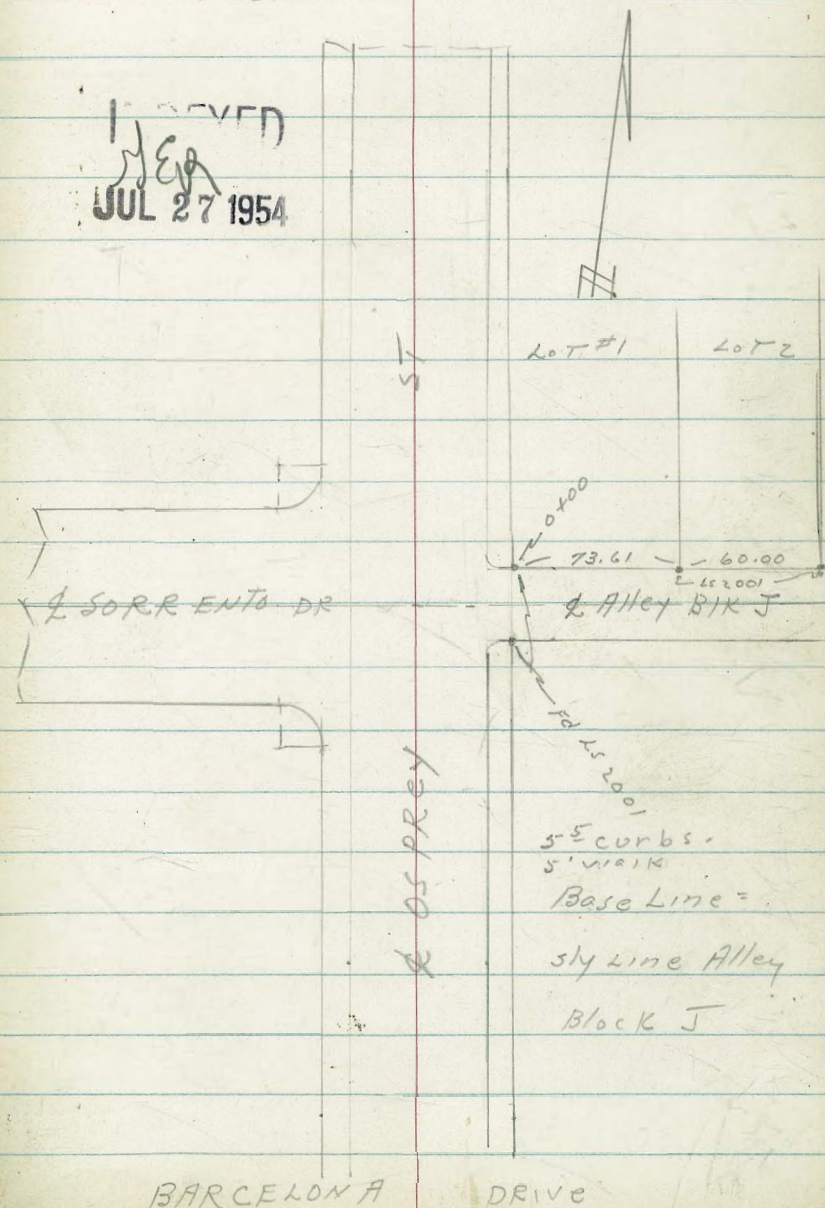 JUL 27 1954
ST
LOT #1
LOT 2
0+00
73.61
60.00
LS 2001
℄ SORRENTO DR
℄ Alley Blk J
Fd LS 2001
℄ OSPREY
5⁵ curbs.
5' walk
Base Line =
sly Line Alley
Block J
BARCELONA DRIVE